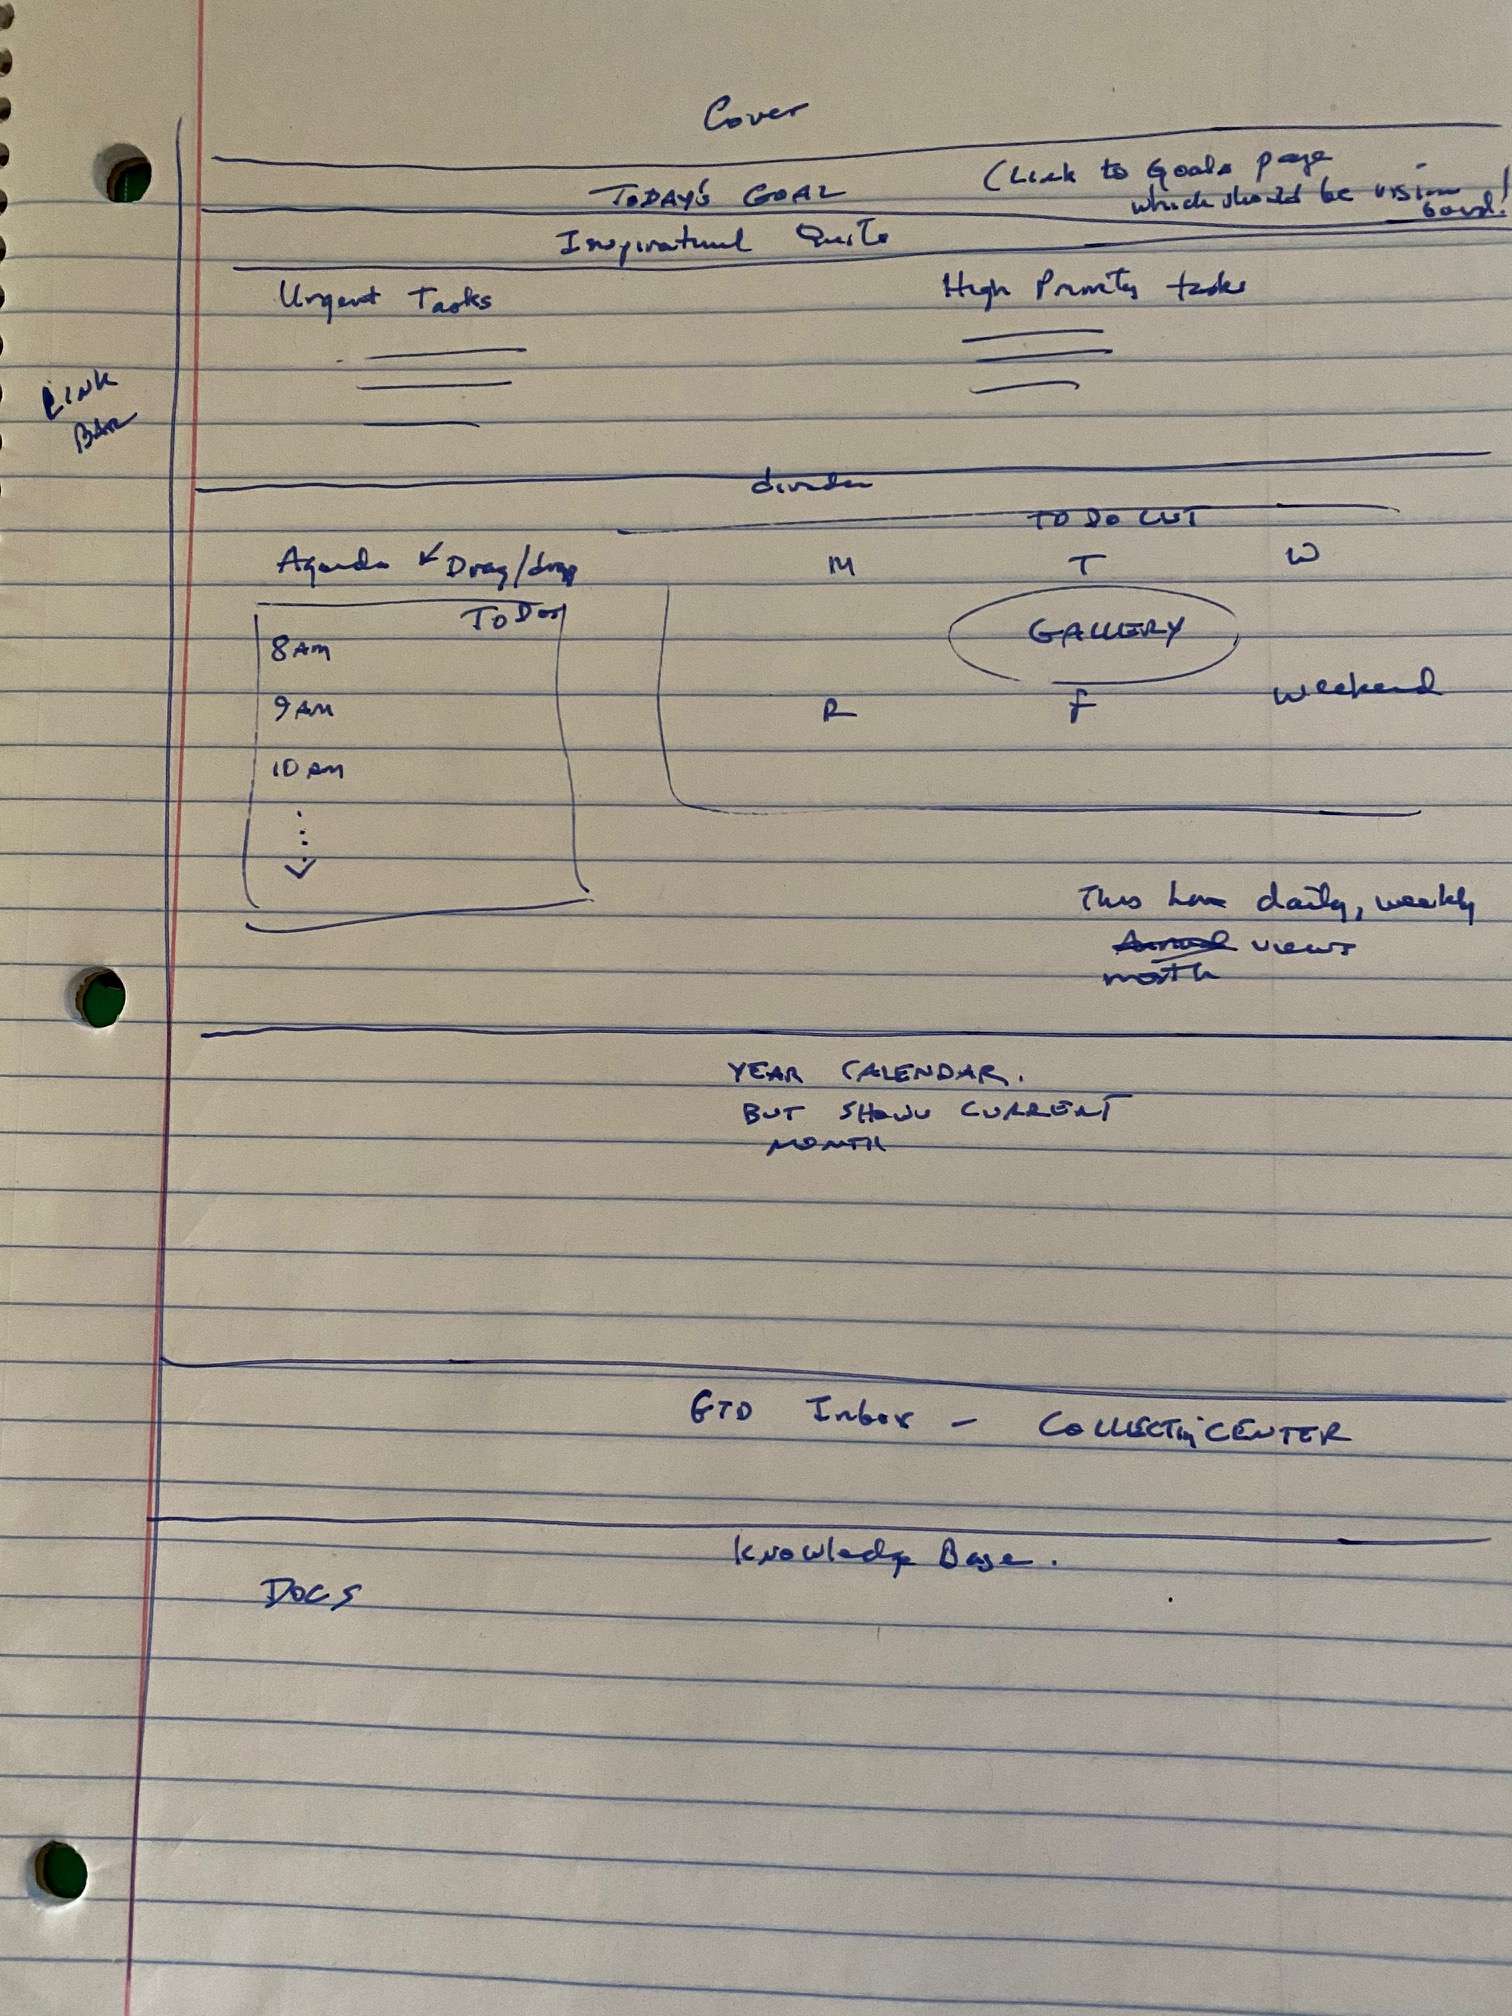 Cover
TODAY'S GOAL
(Link to Goals page
which should be vision
board!
Inspirational Quote
Urgent Tasks
High Priority tasks
LINK
BAR
divider
TO DO LIST
Agenda ↙ Drag/drop
M T W
TODOS
GALLERY
8 AM
R F Weekend
9 AM
10 AM
This have daily, weekly
Annual views
month
YEAR CALENDAR.
BUT SHOW CURRENT
MONTH
GTD Inbox - COLLECTING CENTER
Knowledge Base.
DOCS